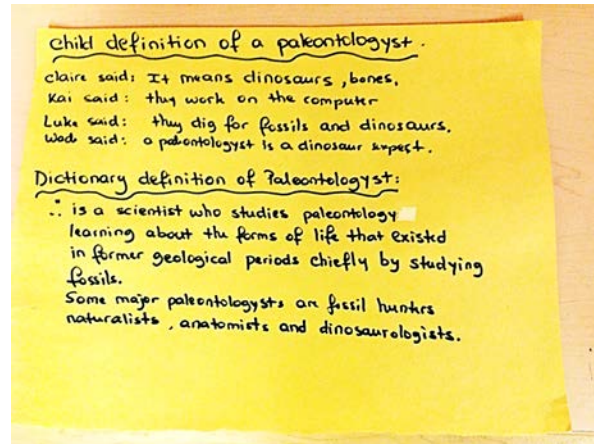 Child definition of a paleontologyst.
Claire said: It means dinosaurs, bones.
Kai said: they work on the computer
Luke said: they dig for fossils and dinosaurs.
Wade said: a paleontologyst is a dinosaur expert.
Dictionary definition of Paleontologyst:
∴ is a scientist who studies paleontology
learning about the forms of life that existed
in former geological periods chiefly by studying
fossils.
Some major paleontologysts are fossil hunters
naturalists, anatomists and dinosaurologists.